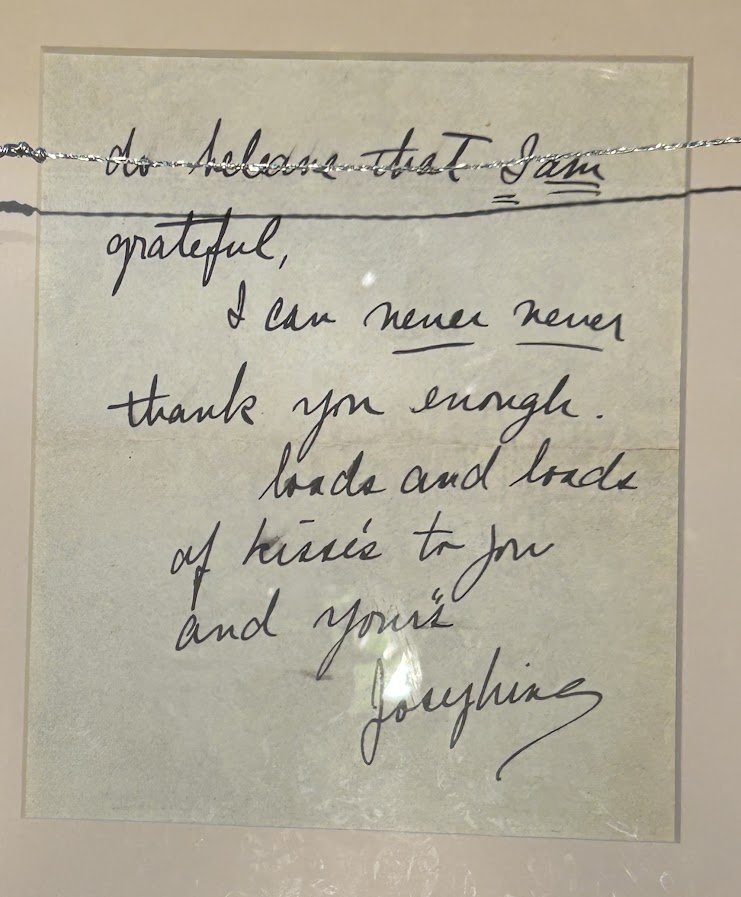 do beleave that I am
grateful,
I can never never
thank you enough.
loads and loads
of kisse's to you
and your"s
Josephine